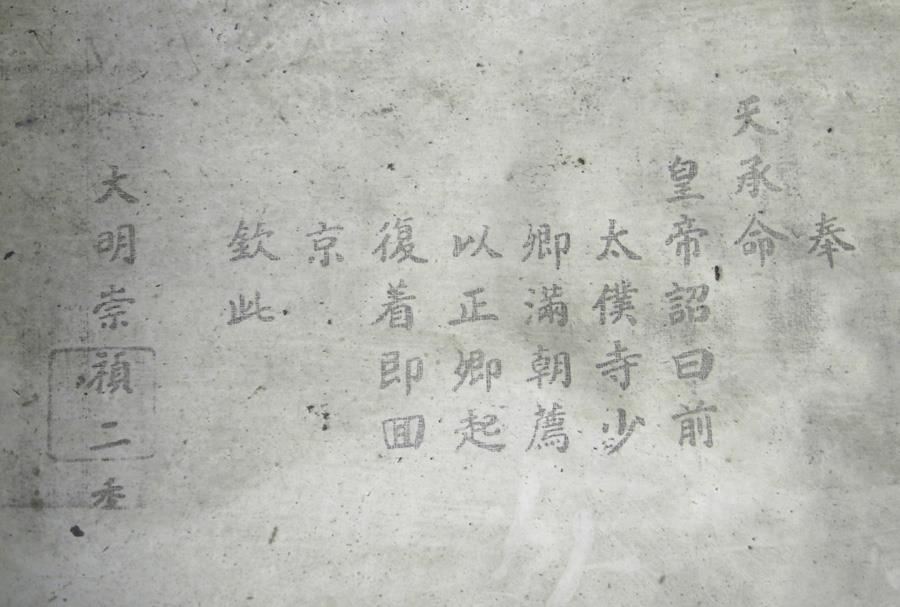 奉
天承命
皇帝詔曰前
太僕寺少
卿滿朝薦
以正卿起
復着即回
京
欽此
大明崇禎二季